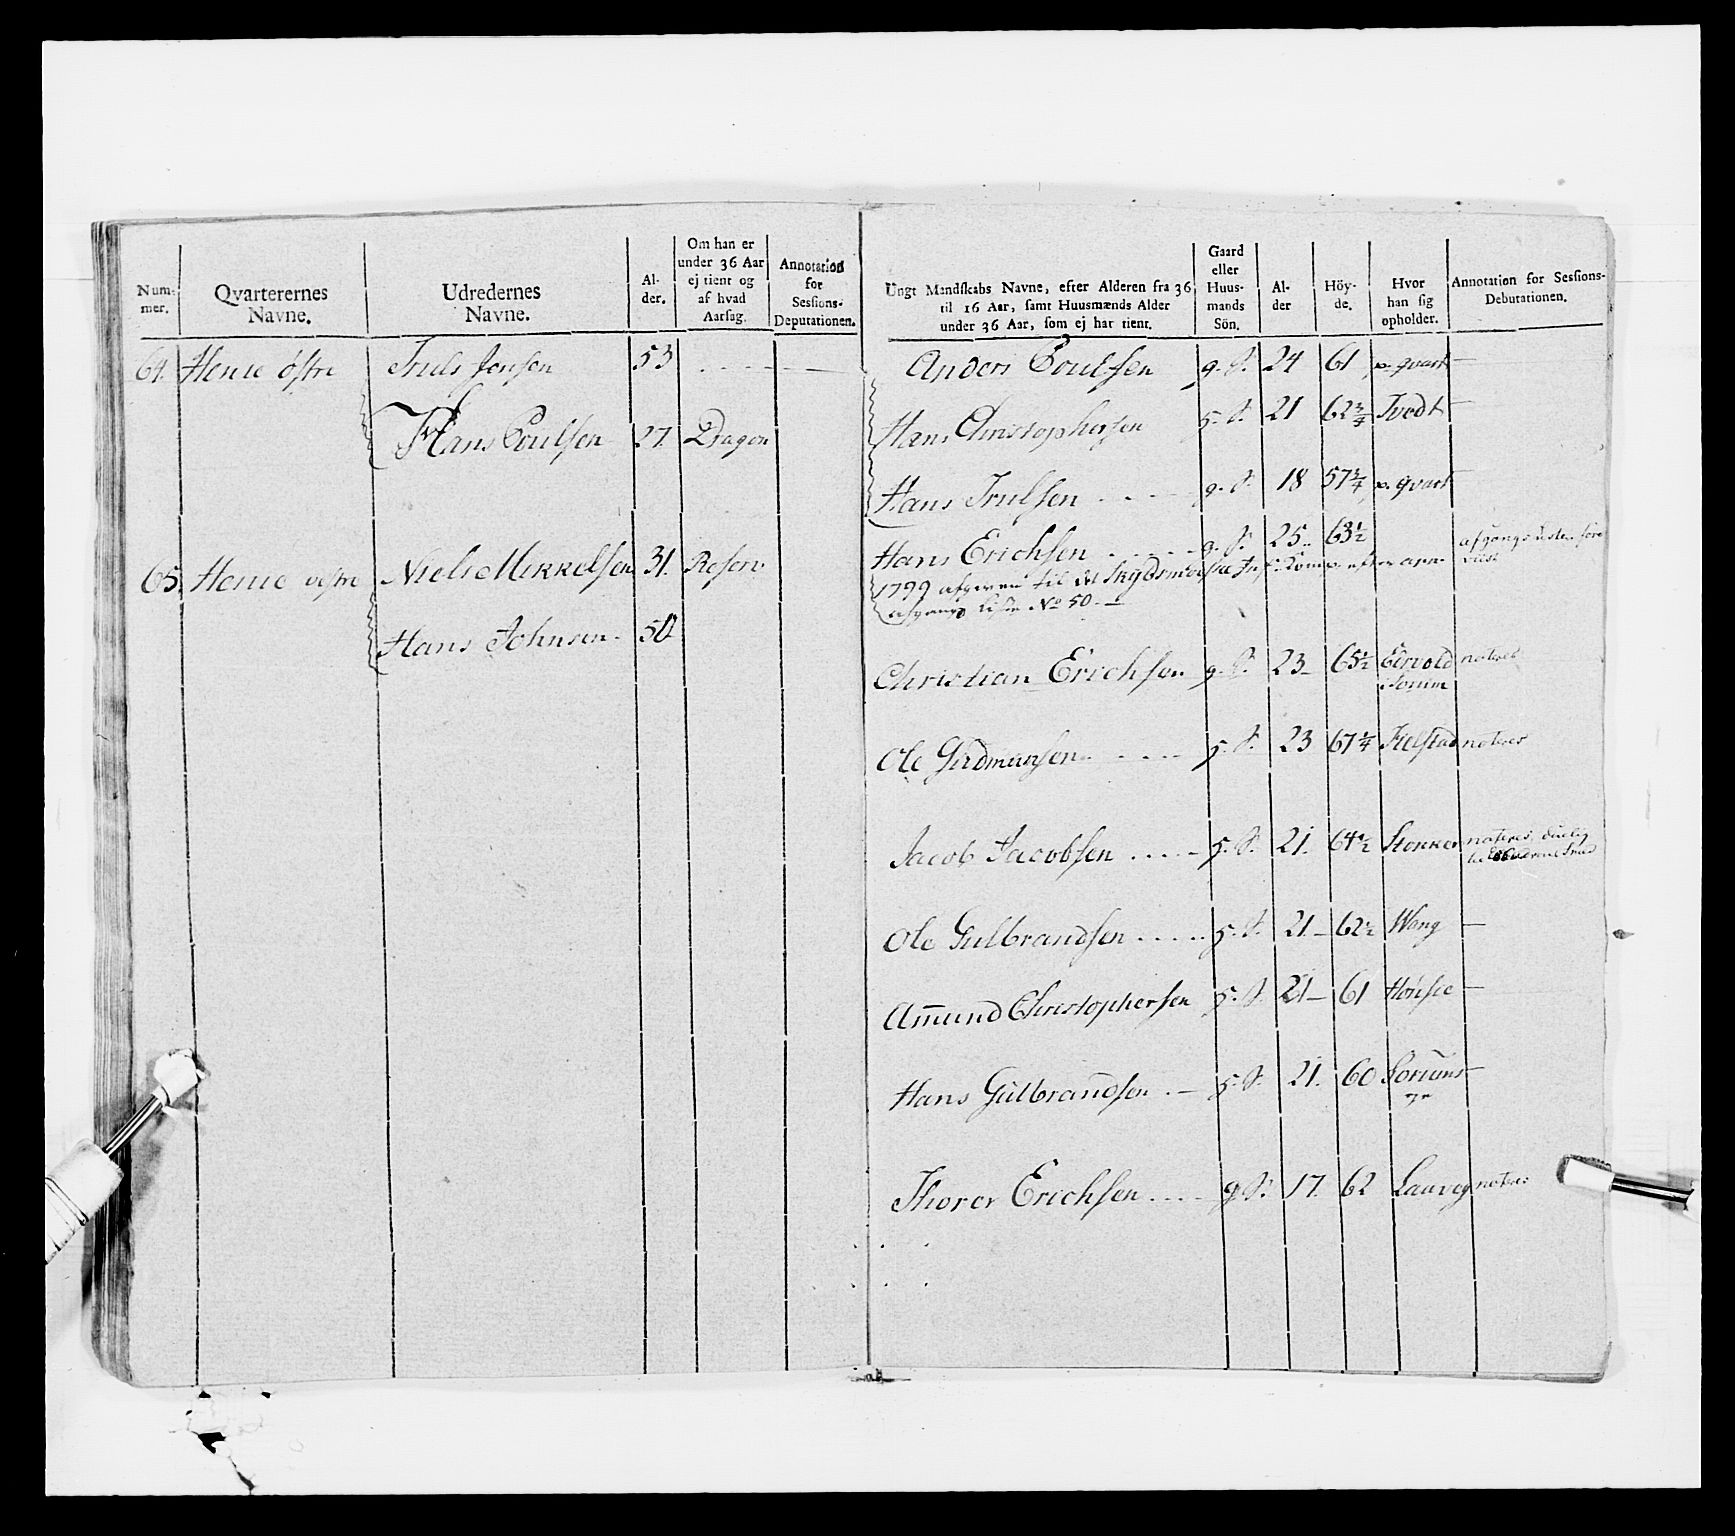 Num-
mer.
Qvarterernes
Navne.
Udredernes
Navne.
Al-
der.
Om han er
under 36 Aar
ej tient og
af hvad
Aarsag.
Annotation
for
Sessions-
Deputationen.
64. Henie östre Truls Jensen 53
Hans Poulsen 27. Dragon
65. Henie vestre Niels Mikkelsen 31. Reserv
Hans Johnsen 50
Ungt Mandskabs Navne, efter Alderen fra 36
til 16 Aar, samt Huusmænds Alder
under 36 Aar, som ej har tient.
Gaard
eller
Huus-
mands
Sön.
Al-
der
Höy-
de.
Hvor
han sig
opholder.
Annotation for Sessions-
Debutationen.
Anders Poulsen g. S. 24 61 p. qvart —
Hans Christophersen S. 21 62¾ Tvedt —
Hans Trulsen g. S. 18 57¾ p. qvart
Hans Erichsen g. S. 25 63½
1799 afgiven til det Skydsmoeske Inf: Komp. efter
afgangs Liste No 50. —
Christian Erichsen g. S. 23 65½ noteres
Ole Gudmunsen S. 23 67¼ Kielstad noteres
Jacob Jacobsen S. 21. 64½ noteres, duelig
Ole Gulbrandsen S. 21 62½ Wang —
Amund Christophersen S. 21 61 —
Hans Gulbrandsen S. 21. 60 —
Thorer Erichsen g S. 17. 62 noteres